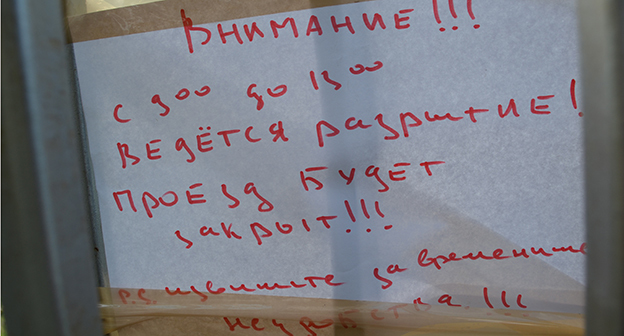 ВНИМАНИЕ!!!
С 9⁰⁰ до 18⁰⁰
ВЕДЁТСЯ разрытие!
ПРОЕЗД БУДЕТ
закрыт!!!
P.S. извините за временные
неудобства!!!